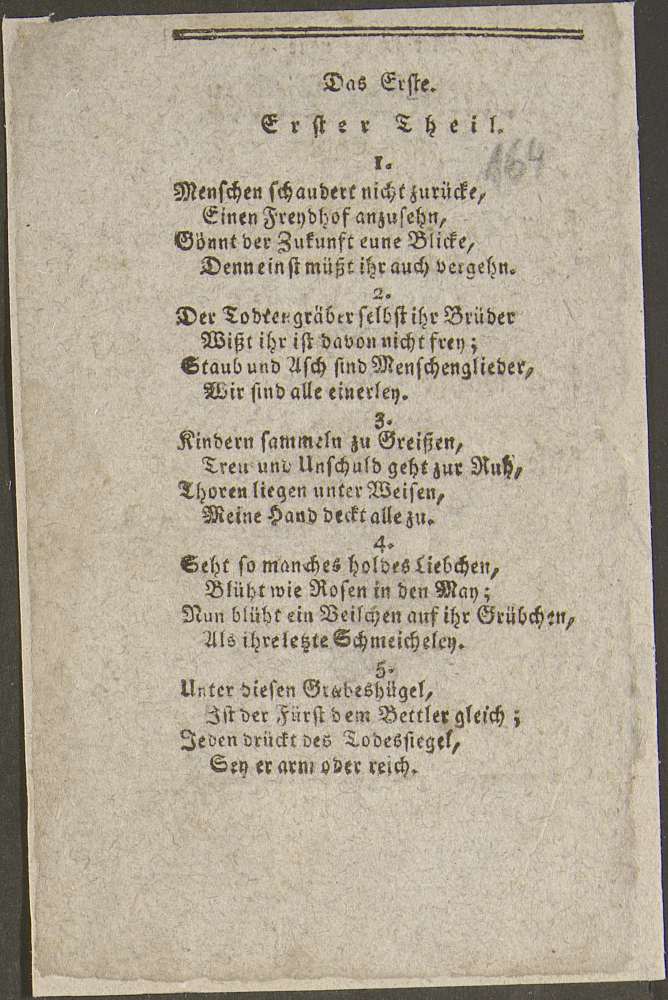 Das Erste.
Erster Theil.
1.
164
Menschen schaudert nicht zurücke,
Einen Freydhof anzusehn,
Gönnt der Zukunft eune Blicke,
Denn einst müßt ihr auch vergehn.
2.
Der Todtengräber selbst ihr Brüder
Wißt ihr ist davon nicht frey;
Staub und Asch sind Menschenglieder,
Wir sind alle einerley.
3.
Kindern sammeln zu Greißen,
Treu und Unschuld geht zur Ruh,
Thoren liegen unter Weisen,
Meine Hand deckt alle zu.
4.
Seht so manches holdes Liebchen,
Blüht wie Rosen in den May;
Nun blüht ein Veilchen auf ihr Grübchen,
Als ihre letzte Schmeicheley.
5.
Unter diesen Grabeshügel,
Ist der Fürst dem Bettler gleich;
Jeden drückt des Todessiegel,
Sey er arm oder reich.